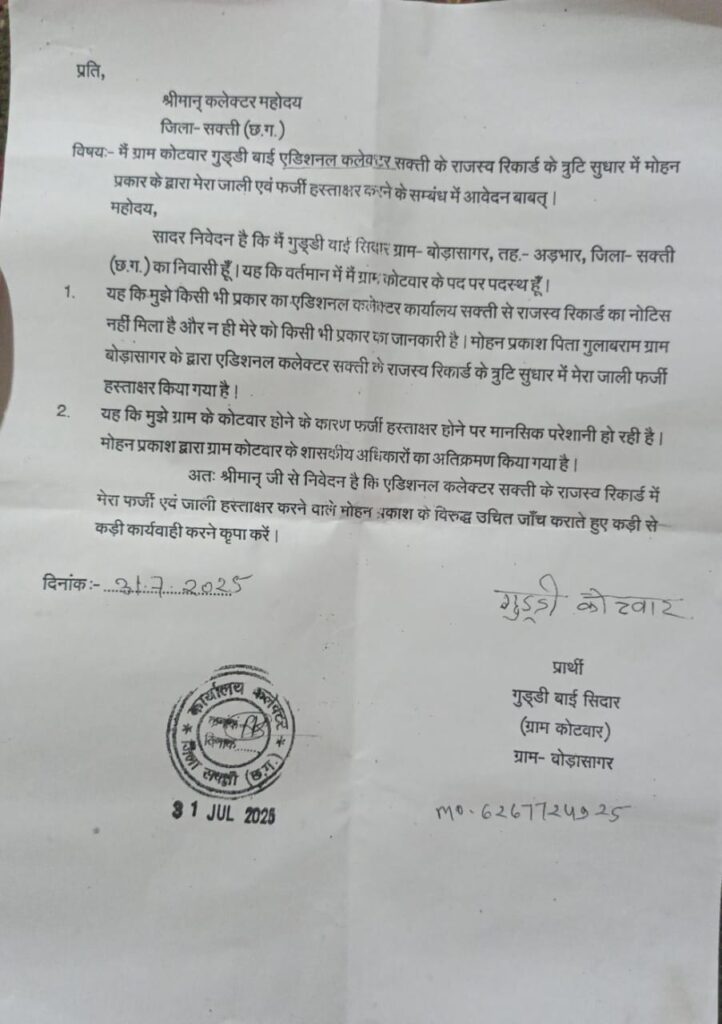 प्रति,
श्रीमान् कलेक्टर महोदय
जिला- सक्ती (छ.ग.)
विषयः- मैं ग्राम कोटवार गुड्डी बाई एडिशनल कलेक्टर सक्ती के राजस्व रिकार्ड के त्रुटि सुधार में मोहन
प्रकार के द्वारा मेरा जाली एवं फर्जी हस्ताक्षर करने के सम्बंध में आवेदन बाबत् ।
महोदय,
सादर निवेदन है कि मैं गुड्डी वाई सिदार ग्राम- बोड़ासागर, तह.- अड़भार, जिला- सक्ती
(छ.ग.) का निवासी हूँ । यह कि वर्तमान में मैं ग्राम कोटवार के पद पर पदस्थ हूँ ।
1. यह कि मुझे किसी भी प्रकार का एडिशनल कलेक्टर कार्यालय सक्ती से राजस्व रिकार्ड का नोटिस
नहीं मिला है और न ही मेरे को किसी भी प्रकार का जानकारी है । मोहन प्रकाश पिता गुलाबराम ग्राम
बोड़ासागर के द्वारा एडिशनल कलेक्टर सक्ती के राजस्व रिकार्ड के त्रुटि सुधार में मेरा जाली फर्जी
हस्ताक्षर किया गया है ।
2. यह कि मुझे ग्राम के कोटवार होने के कारण फर्जी हस्ताक्षर होने पर मानसिक परेशानी हो रही है ।
मोहन प्रकाश द्वारा ग्राम कोटवार के शासकीय अधिकारों का अतिक्रमण किया गया है ।
अतः श्रीमान् जी से निवेदन है कि एडिशनल कलेक्टर सक्ती के राजस्व रिकार्ड में
मेरा फर्जी एवं जाली हस्ताक्षर करने वाले मोहन प्रकाश के विरुद्ध उचित जाँच कराते हुए कड़ी से
कड़ी कार्यवाही करने कृपा करें ।
दिनांकः- 31.7.2025
गुड्डी कोटवार
प्रार्थी
गुड्डी बाई सिदार
(ग्राम कोटवार)
ग्राम- वोड़ासागर
mo. 6267724925
कार्यालय कलेक्टर
दिनांक
जिला सक्ती (छ.ग.)
31 JUL 2025